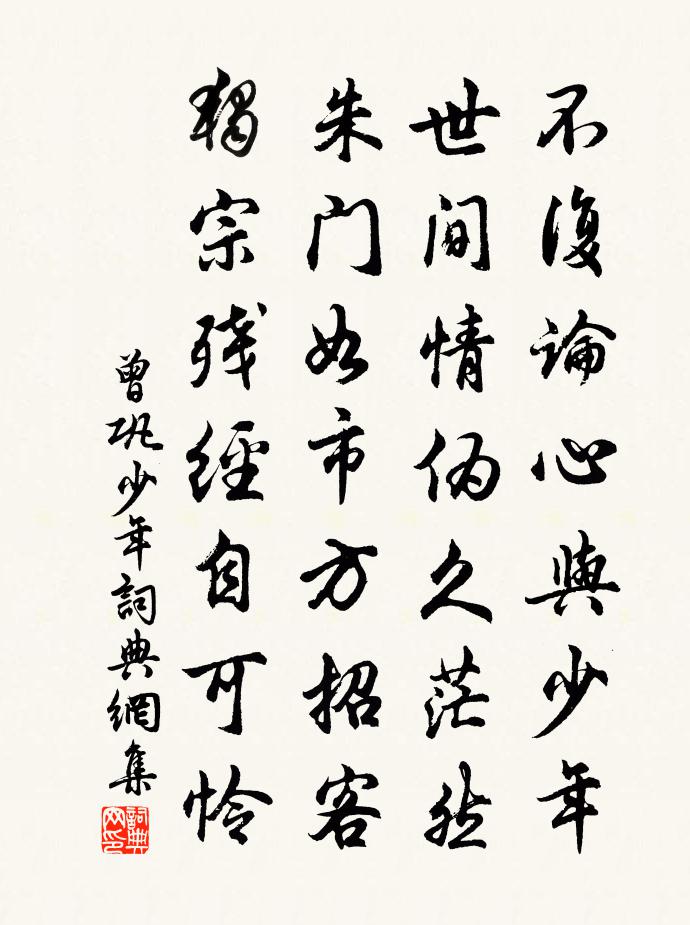 不復論心與少年
世间情偽久茫然
朱门如市方招客
獨宗残經自可怜
曾巩少年詞典網集
詞典网印